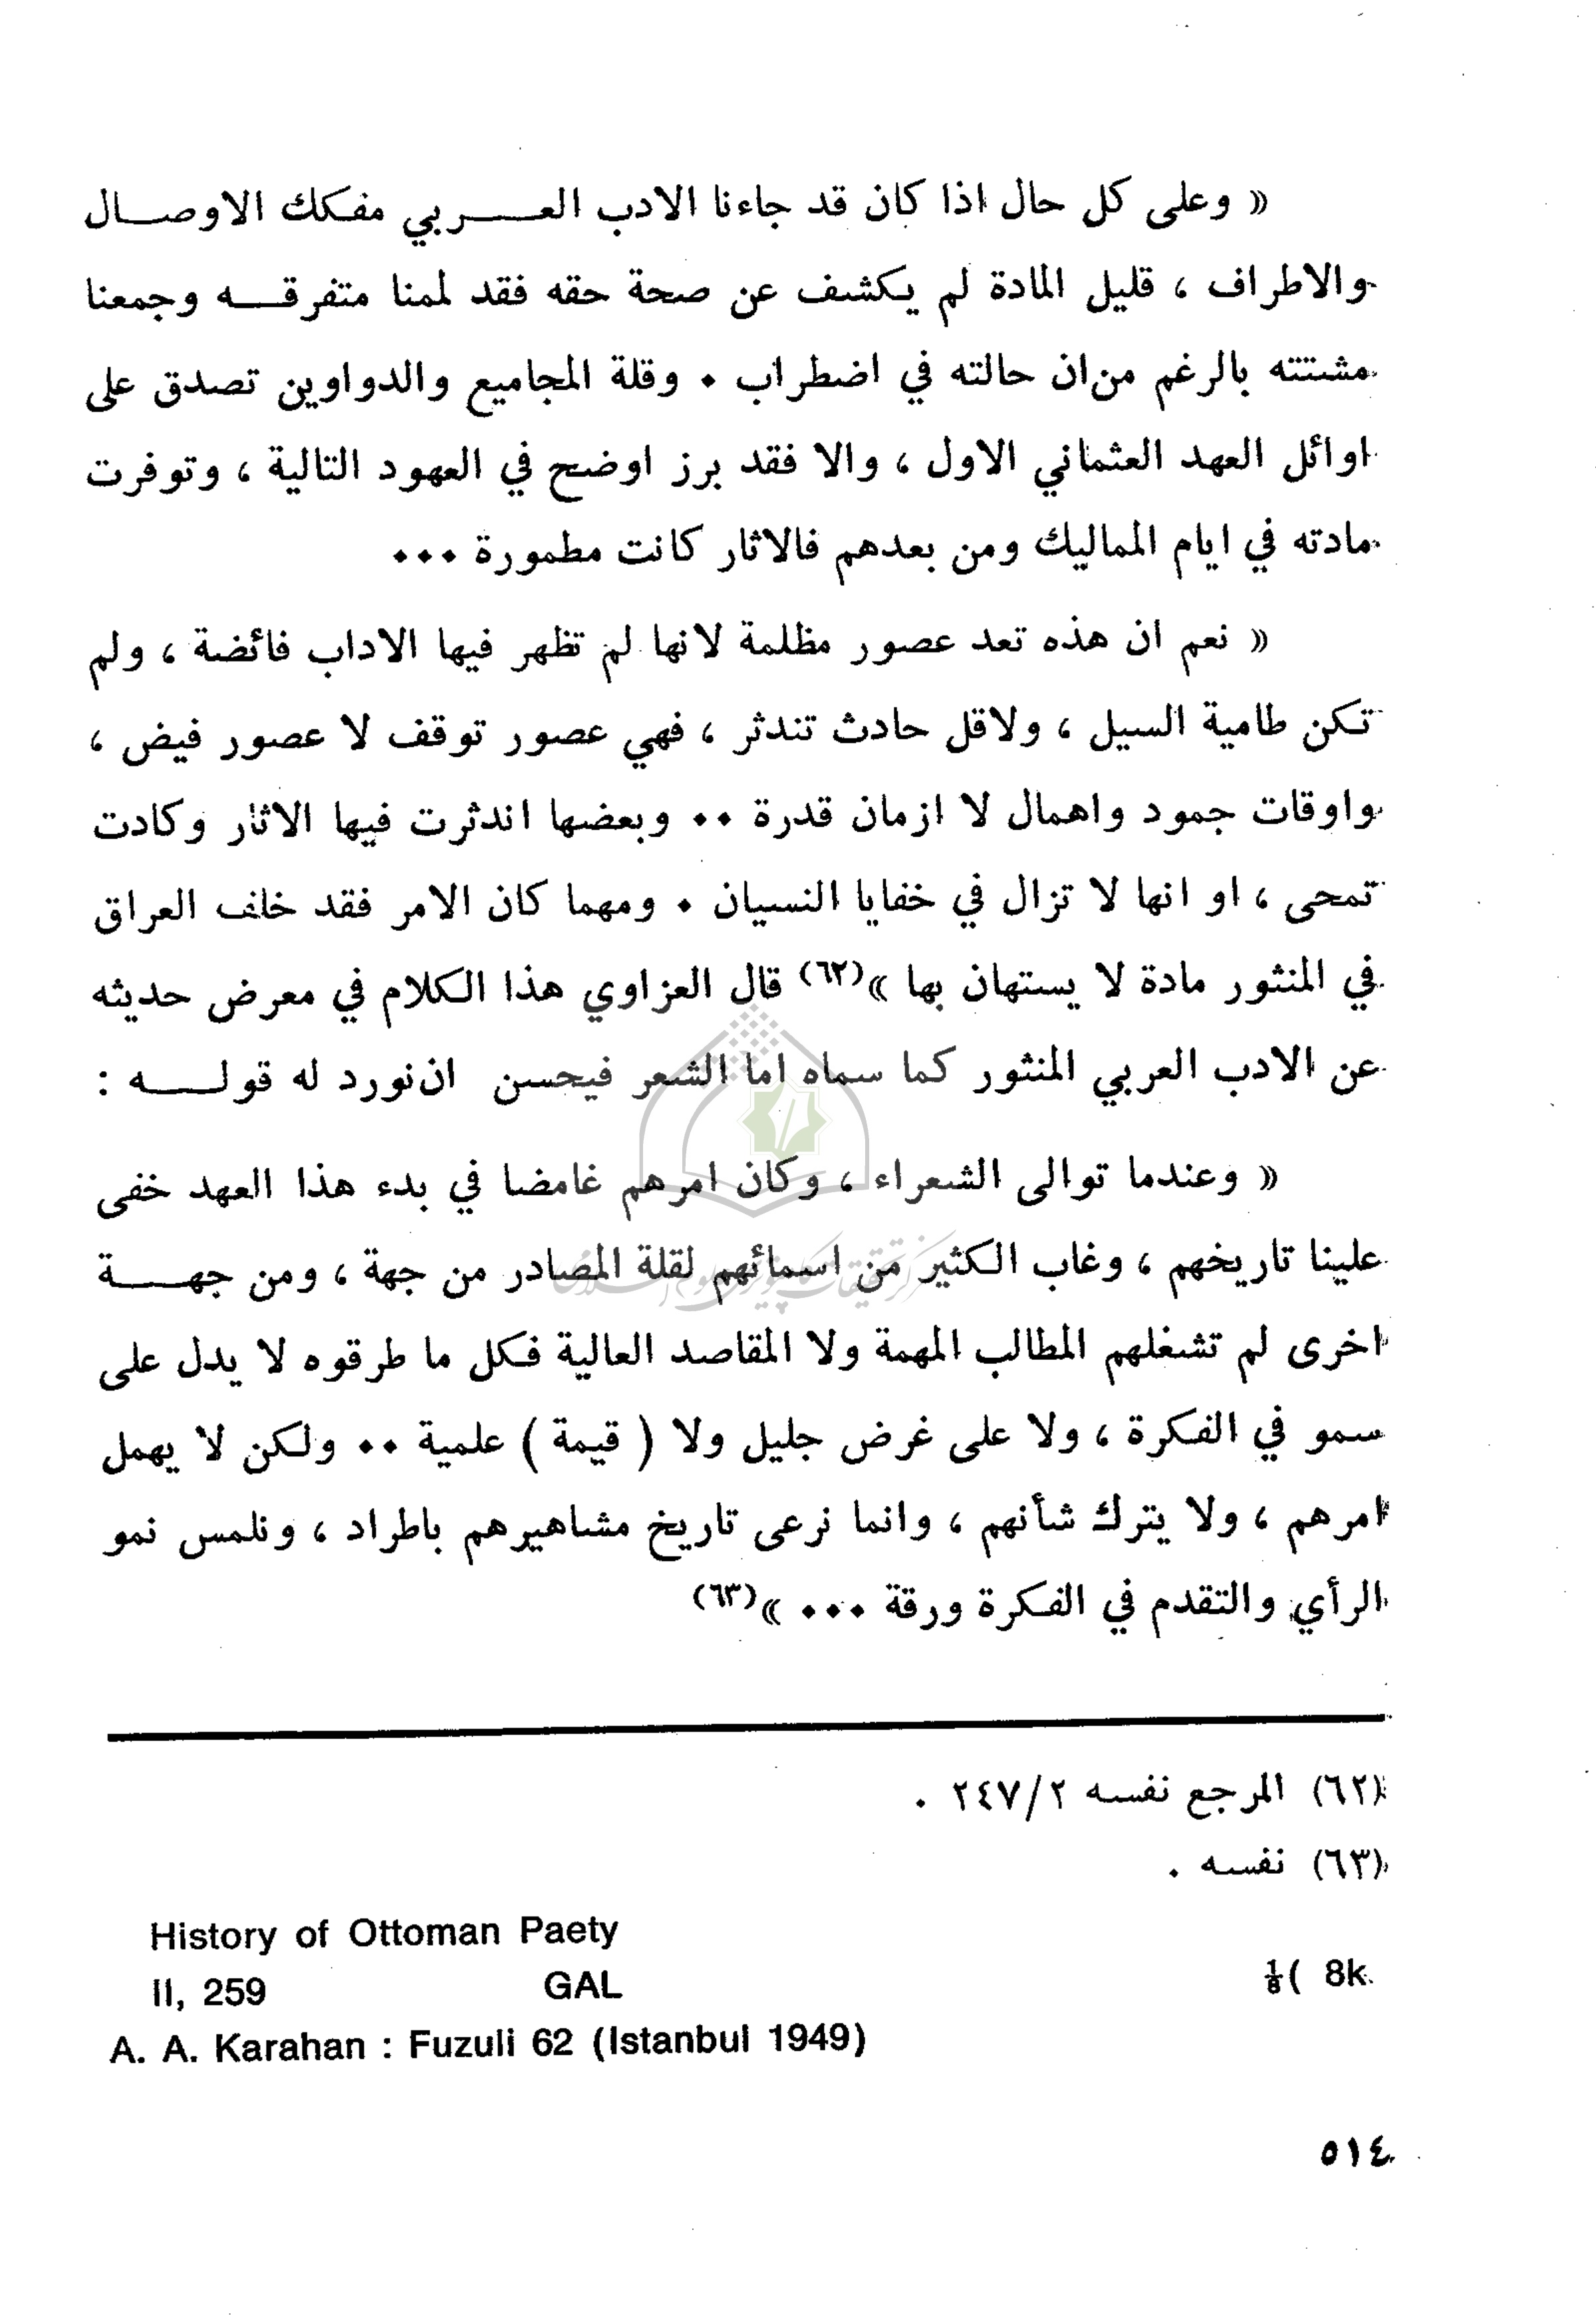 « وعلى كل حال اذا كان قد جاءنا الادب العـــــربي مفكك الاوصـــال
والاطراف ، قليل المادة لم يكشف عن صحة حقه فقد لمنا متفرقـــه وجمعنا
مشتتته بالرغم من ان حالته في اضطراب ٠ وقلة المجاميع والدواوين تصدق على
اوائل العهد العثماني الاول ، والا فقد برز اوضح في العهود التالية ، وتوفرت
مادته في ايام المماليك ومن بعدهم فالاثار كانت مطمورة ٠٠٠
« نعم ان هذه تعد عصور مظلمة لانها لم تظهر فيها الاداب فائضة ، ولم
تكن طامية السيل ، ولاقل حادث تندثر ، فهي عصور توقف لا عصور فيض ،
واوقات جمود واهمال لا ازمان قدرة ٠٠ وبعضها اندثرت فيها الاثار وكادت
تمحى ، او انها لا تزال في خفايا النسيان ٠ ومهما كان الامر فقد خلف العراق
في المنثور مادة لا يستهان بها »(٦٢) قال العزاوي هذا الكلام في معرض حديثه
عن الادب العربي المنثور كما سماه اما الشعر فيحسن ان نورد له قولـــــه :
« وعندما توالى الشعراء ، وكان امرهم غامضا في بدء هذا العهد خفى
علينا تاريخهم ، وغاب الكثير من اسمائهم لقلة المصادر من جهة ، ومن جهـــــة
اخرى لم تشغلهم المطالب المهمة ولا المقاصد العالية فكل ما طرقوه لا يدل على
سمو في الفكرة ، ولا على غرض جليل ولا ( قيمة ) علمية ٠٠ ولكن لا يهمل
امرهم ، ولا يترك شأنهم ، وانما نرعى تاريخ مشاهيرهم باطراد ، ونلمس نمو
الرأي والتقدم في الفكرة ورقة ٠٠٠ »(٦٣)
(٦٢) المرجع نفسه ٢٤٧/٢ .
(٦٣) نفسه .
History of Ottoman Paety
II, 259 GAL ⅛( 8k
A. A. Karahan : Fuzuli 62 (Istanbul 1949)
٥١٤